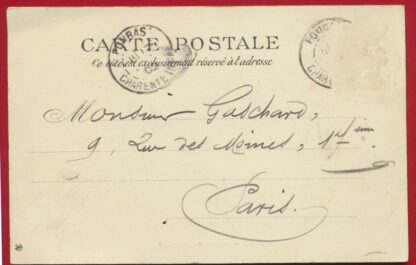 CARTE POSTALE
Ce côté est exclusivement réservé à l'adresse
FOURAS
CHARENTE
FOUR
CHAR
Monsieur Gaschard,
9, Rue des Moines,
Paris.